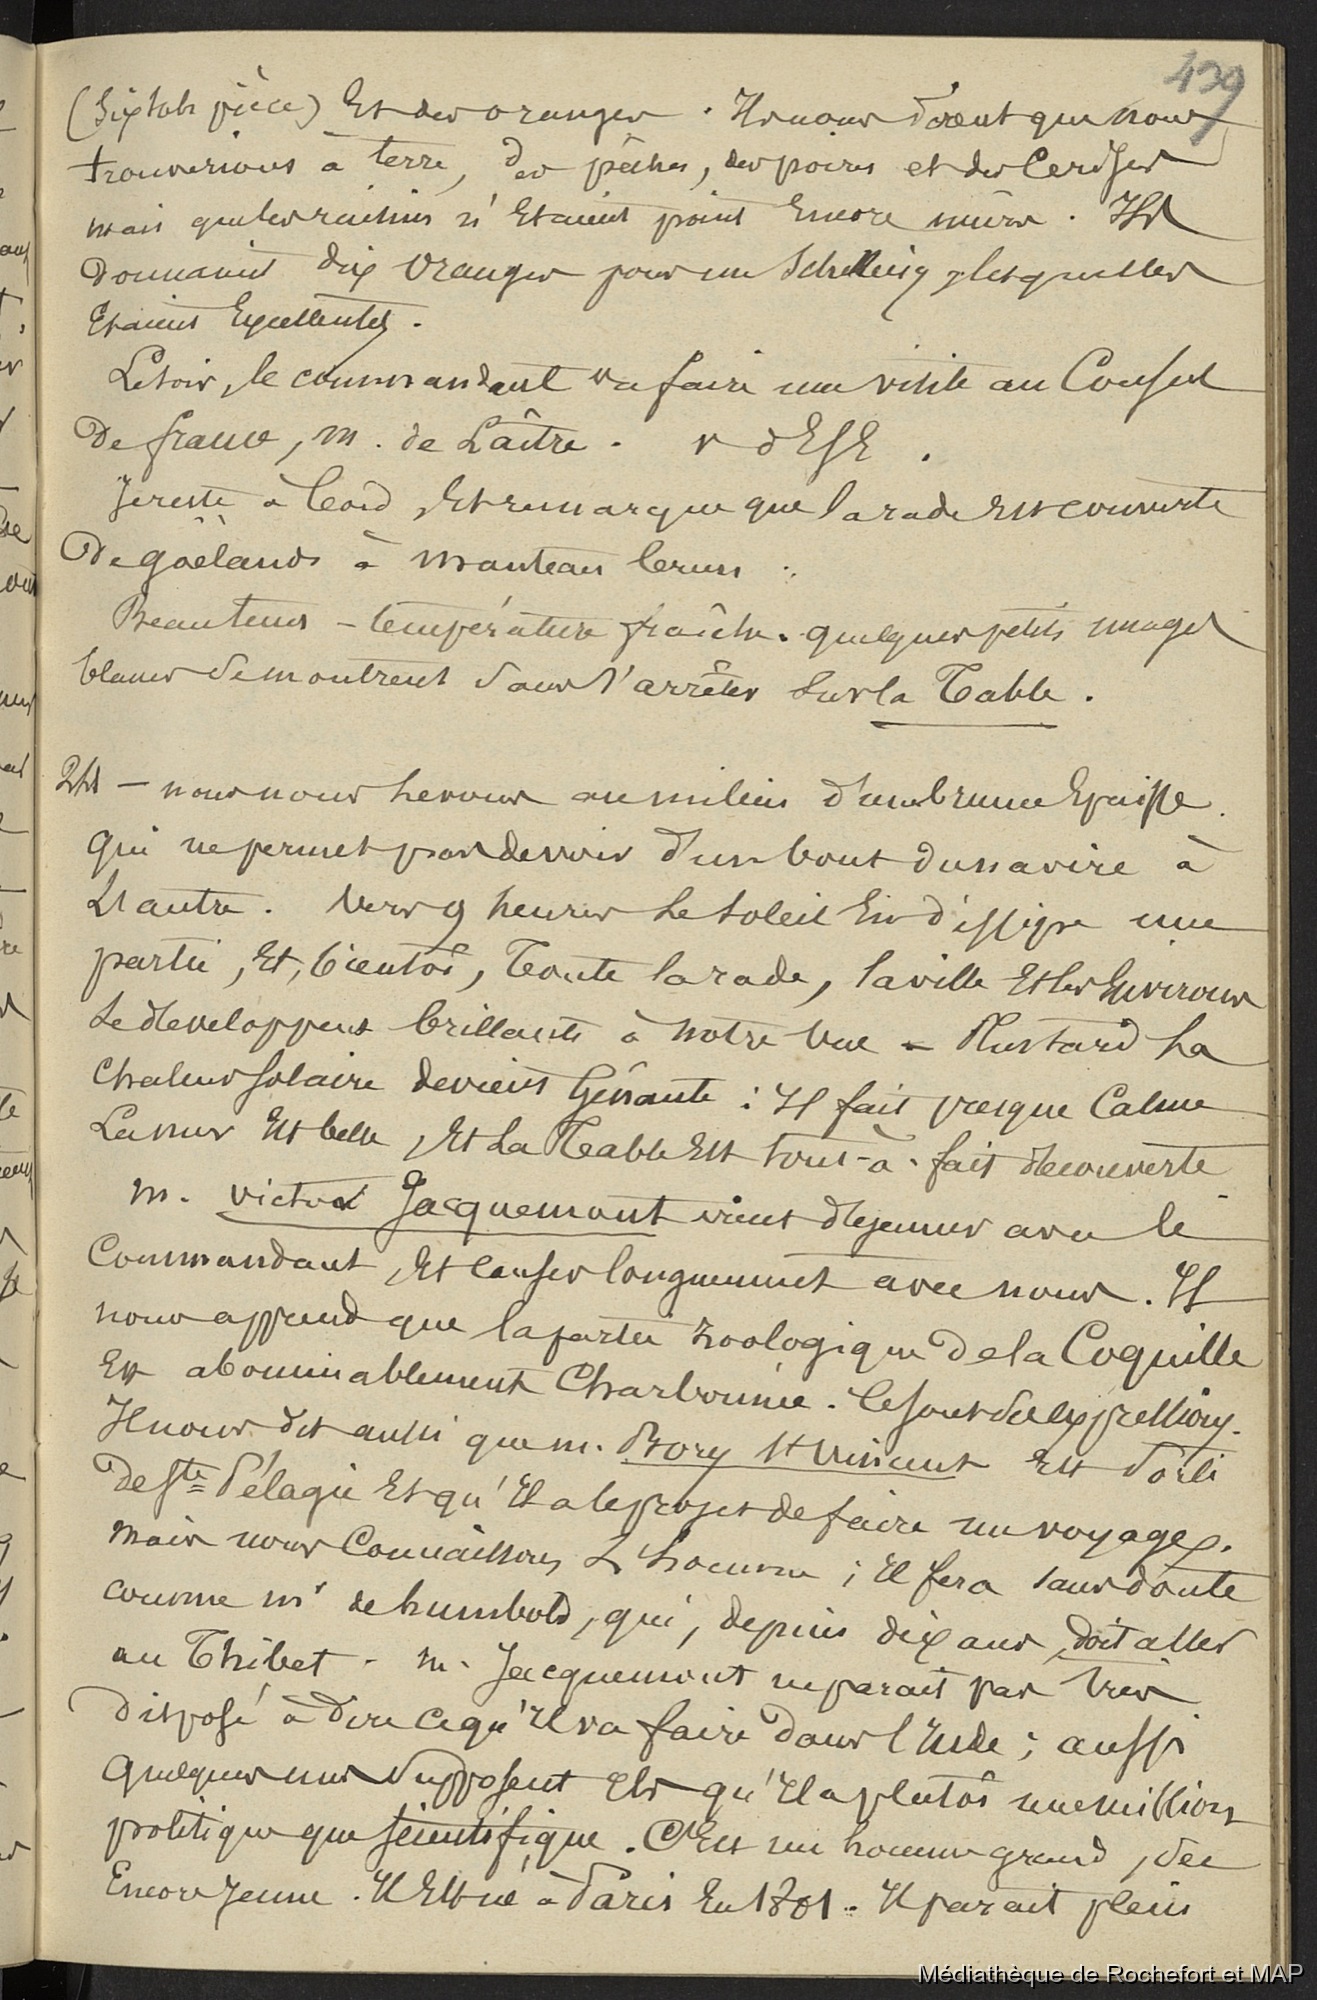 439
(Six sols pièce) Et des oranges. Ils nous dirent que nous
trouverions à terre, des pêches, des poires et des Cerises
mais que les raisins n'Etaient point Encore mûrs. Ils
Donnaient dix Oranges pour un Schelling, lesquelles
Etaient Excellentes.
Le soir, le commandant va faire une visite au Consul
De france, M. de Laître. v d ESE.
Je reste à bord, Et remarque que la rade est couverte
De goëlands à manteau brun.
Beau tems - température fraîche. quelques petits nuages
blancs se montrent sans s'arrêter sur la Table.
24 - nous nous levons au milieu d'une brume Epaisse
qui ne permet pas de voir d'un bout du navire à
L'autre. Vers 9 heures le soleil En dissipe une
partie, Et, bientôt, Toute la rade, la ville Et les Environs
se developpent brillants à notre vue - Plus tard la
chaleur solaire devient Gênante : Il fait presque Calme
La mer Est belle, Et La Table Est tout-à-fait decouverte
M. victor Jacquemont vient dejeuner avec le
Commandant, Et causer longuement avec nous. Il
nous apprend que la partie zoologique De la Coquille
Est abominablement Charbonnée. Ce sont ses expressions.
Il nous dit aussi que m. Bory St Vincent Est sorti
De Ste Pélagie Et qu'Il a le projet de faire un voyage.
Mais nous Connaissons L'homme ; Il fera sans doute
comme mr de humbold, qui, depuis dix ans, doit aller
au Thibet. m. Jacquemont ne parait pas très
disposé à dire ce qu'Il va faire dans l'Inde ; aussi
quelques uns supposent qu'Il a plutôt une mission
politique que scientifique. C'Est un homme grand, sec
Encore jeune. Il Est né à Paris En 1801. Il parait plein
Médiathèque de Rochefort et MAP